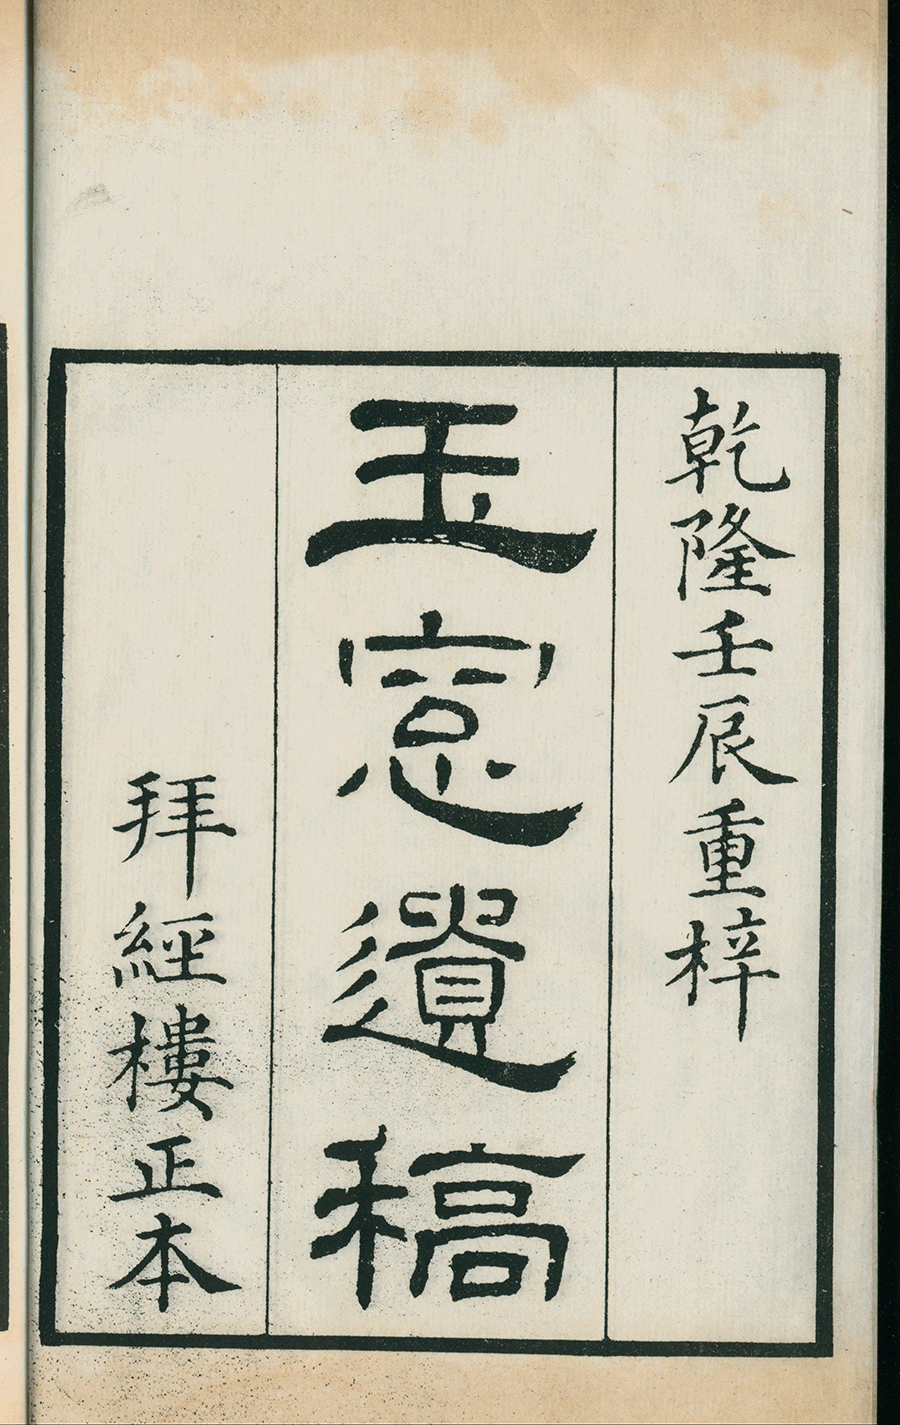 乾隆壬辰重梓
玉窓遺稿
拜經樓正本